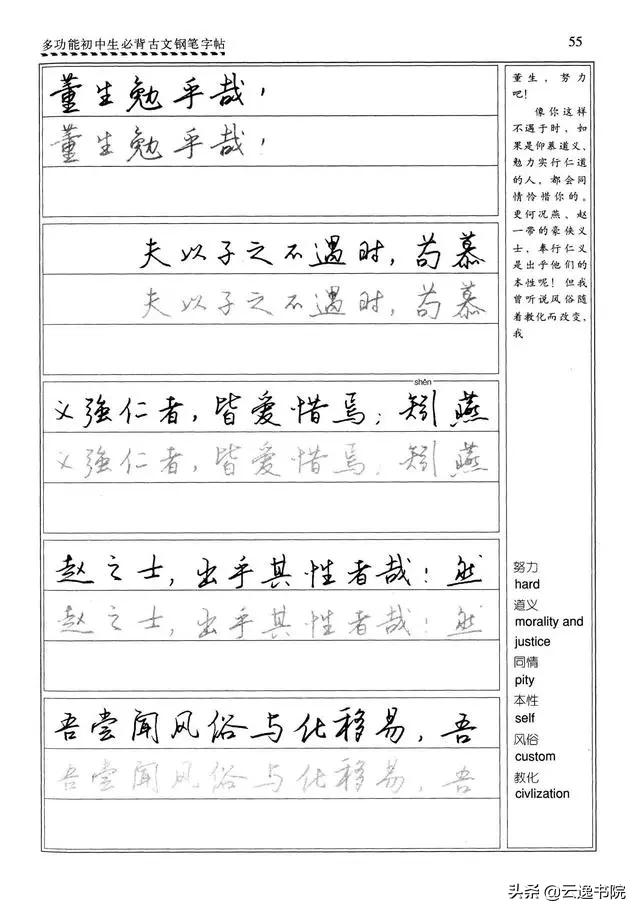 多功能初中生必背古文钢笔字帖
55
董生勉乎哉！
董生勉乎哉！
夫以子之不遇时，苟慕
夫以子之不遇时，苟慕
shěn
义强仁者，皆爱惜焉；矧燕
义强仁者，皆爱惜焉；矧燕
赵之士，出乎其性者哉！然
赵之士，出乎其性者哉！然
吾尝闻风俗与化移易，吾
吾尝闻风俗与化移易，吾
董生，努力
吧！
像你这样
不遇于时，如
果是仰慕道义、
勉力实行仁道
的人，都会同
情怜惜你的。
更何况燕、赵
一带的豪侠义
士，奉行仁义
是出乎他们的
本性呢！但我
曾听说风俗随
着教化而改变，
我
努力
hard
道义
morality and
justice
同情
pity
本性
self
风俗
custom
教化
civlization
头条@云逸书院